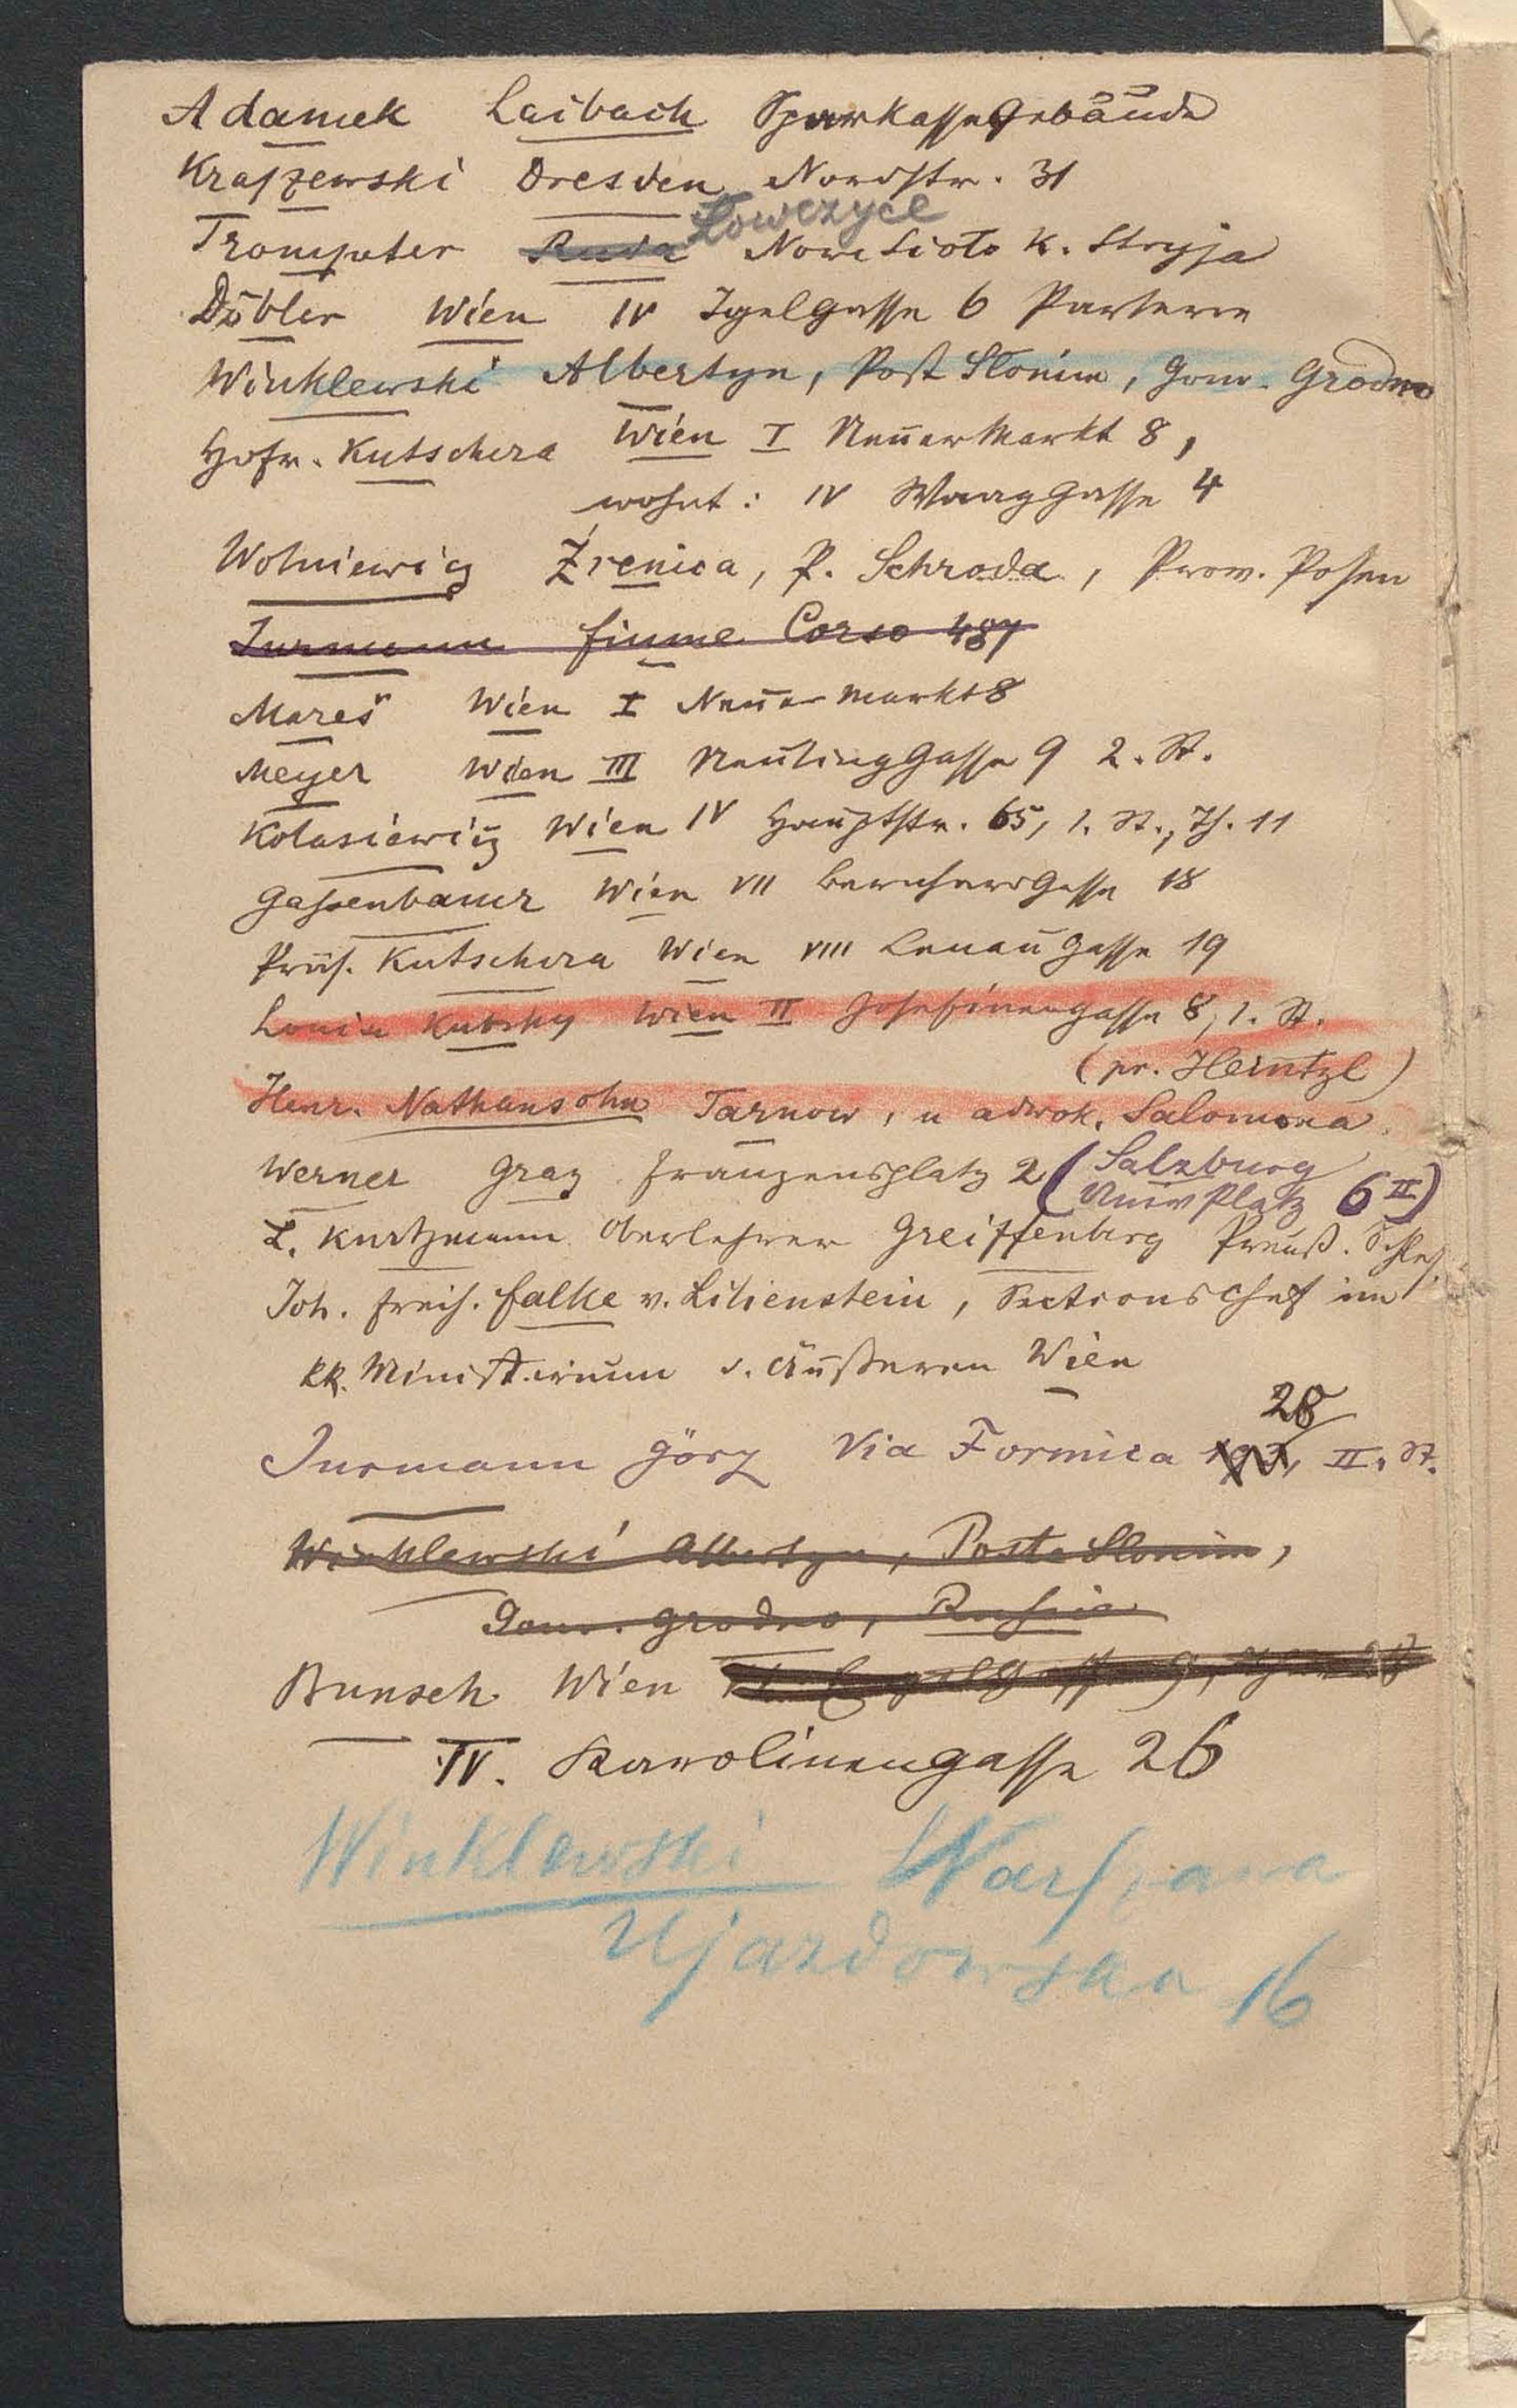 Adamek Laibach Sparkassegebäude
Kraszewski Dresden Nordstr. 31
Trompeter Ruda Łowczyce Nowe Sioło k. Stryja
Döbler Wien IV Igelgasse 6 Parterre
Winklewski Albertyn, Post Słonim, Gouv. Grodno
Hofr. Kutschera Wien I Neuer Markt 8,
wohnt: IV Waaggasse 4
Wolniewicz Źrenica, P. Schroda, Prov. Posen
Jurmann Fiume Corso 487
Mareš Wien I Neuer Markt 8
Meyer Wien III Neulinggasse 9 2. St.
Kolasiewicz Wien IV Hauptstr. 65, 1. St., Th. 11
Gassenbauer Wien VII 18
Präs. Kutschera Wien VIII Lenaugasse 19
Louise Kubsky Wien II Josefinengasse 8, 1. St.
(pr. Heintzl)
Henr. Nathansohn Tarnow, u adwok. Salomona
Werner Graz Franzensplatz 2 (Salzburg
Univ Platz 6 II)
L. Kurtzmann Oberlehrer Greiffenberg Preuß. Schles.
Joh. Freih. Falke v. Lilienstein, Sectionschef im
kk. Ministerium d. Äußeren Wien
28
Jurmann Görz Via Formica 193, II. St.
Winklewski Albertyn, Poste Słonim,
Gouv. Grodno, Russia
Bunsch Wien
IV. Karolinengasse 26
Winklewski Warszawa
Ujazdowska 16